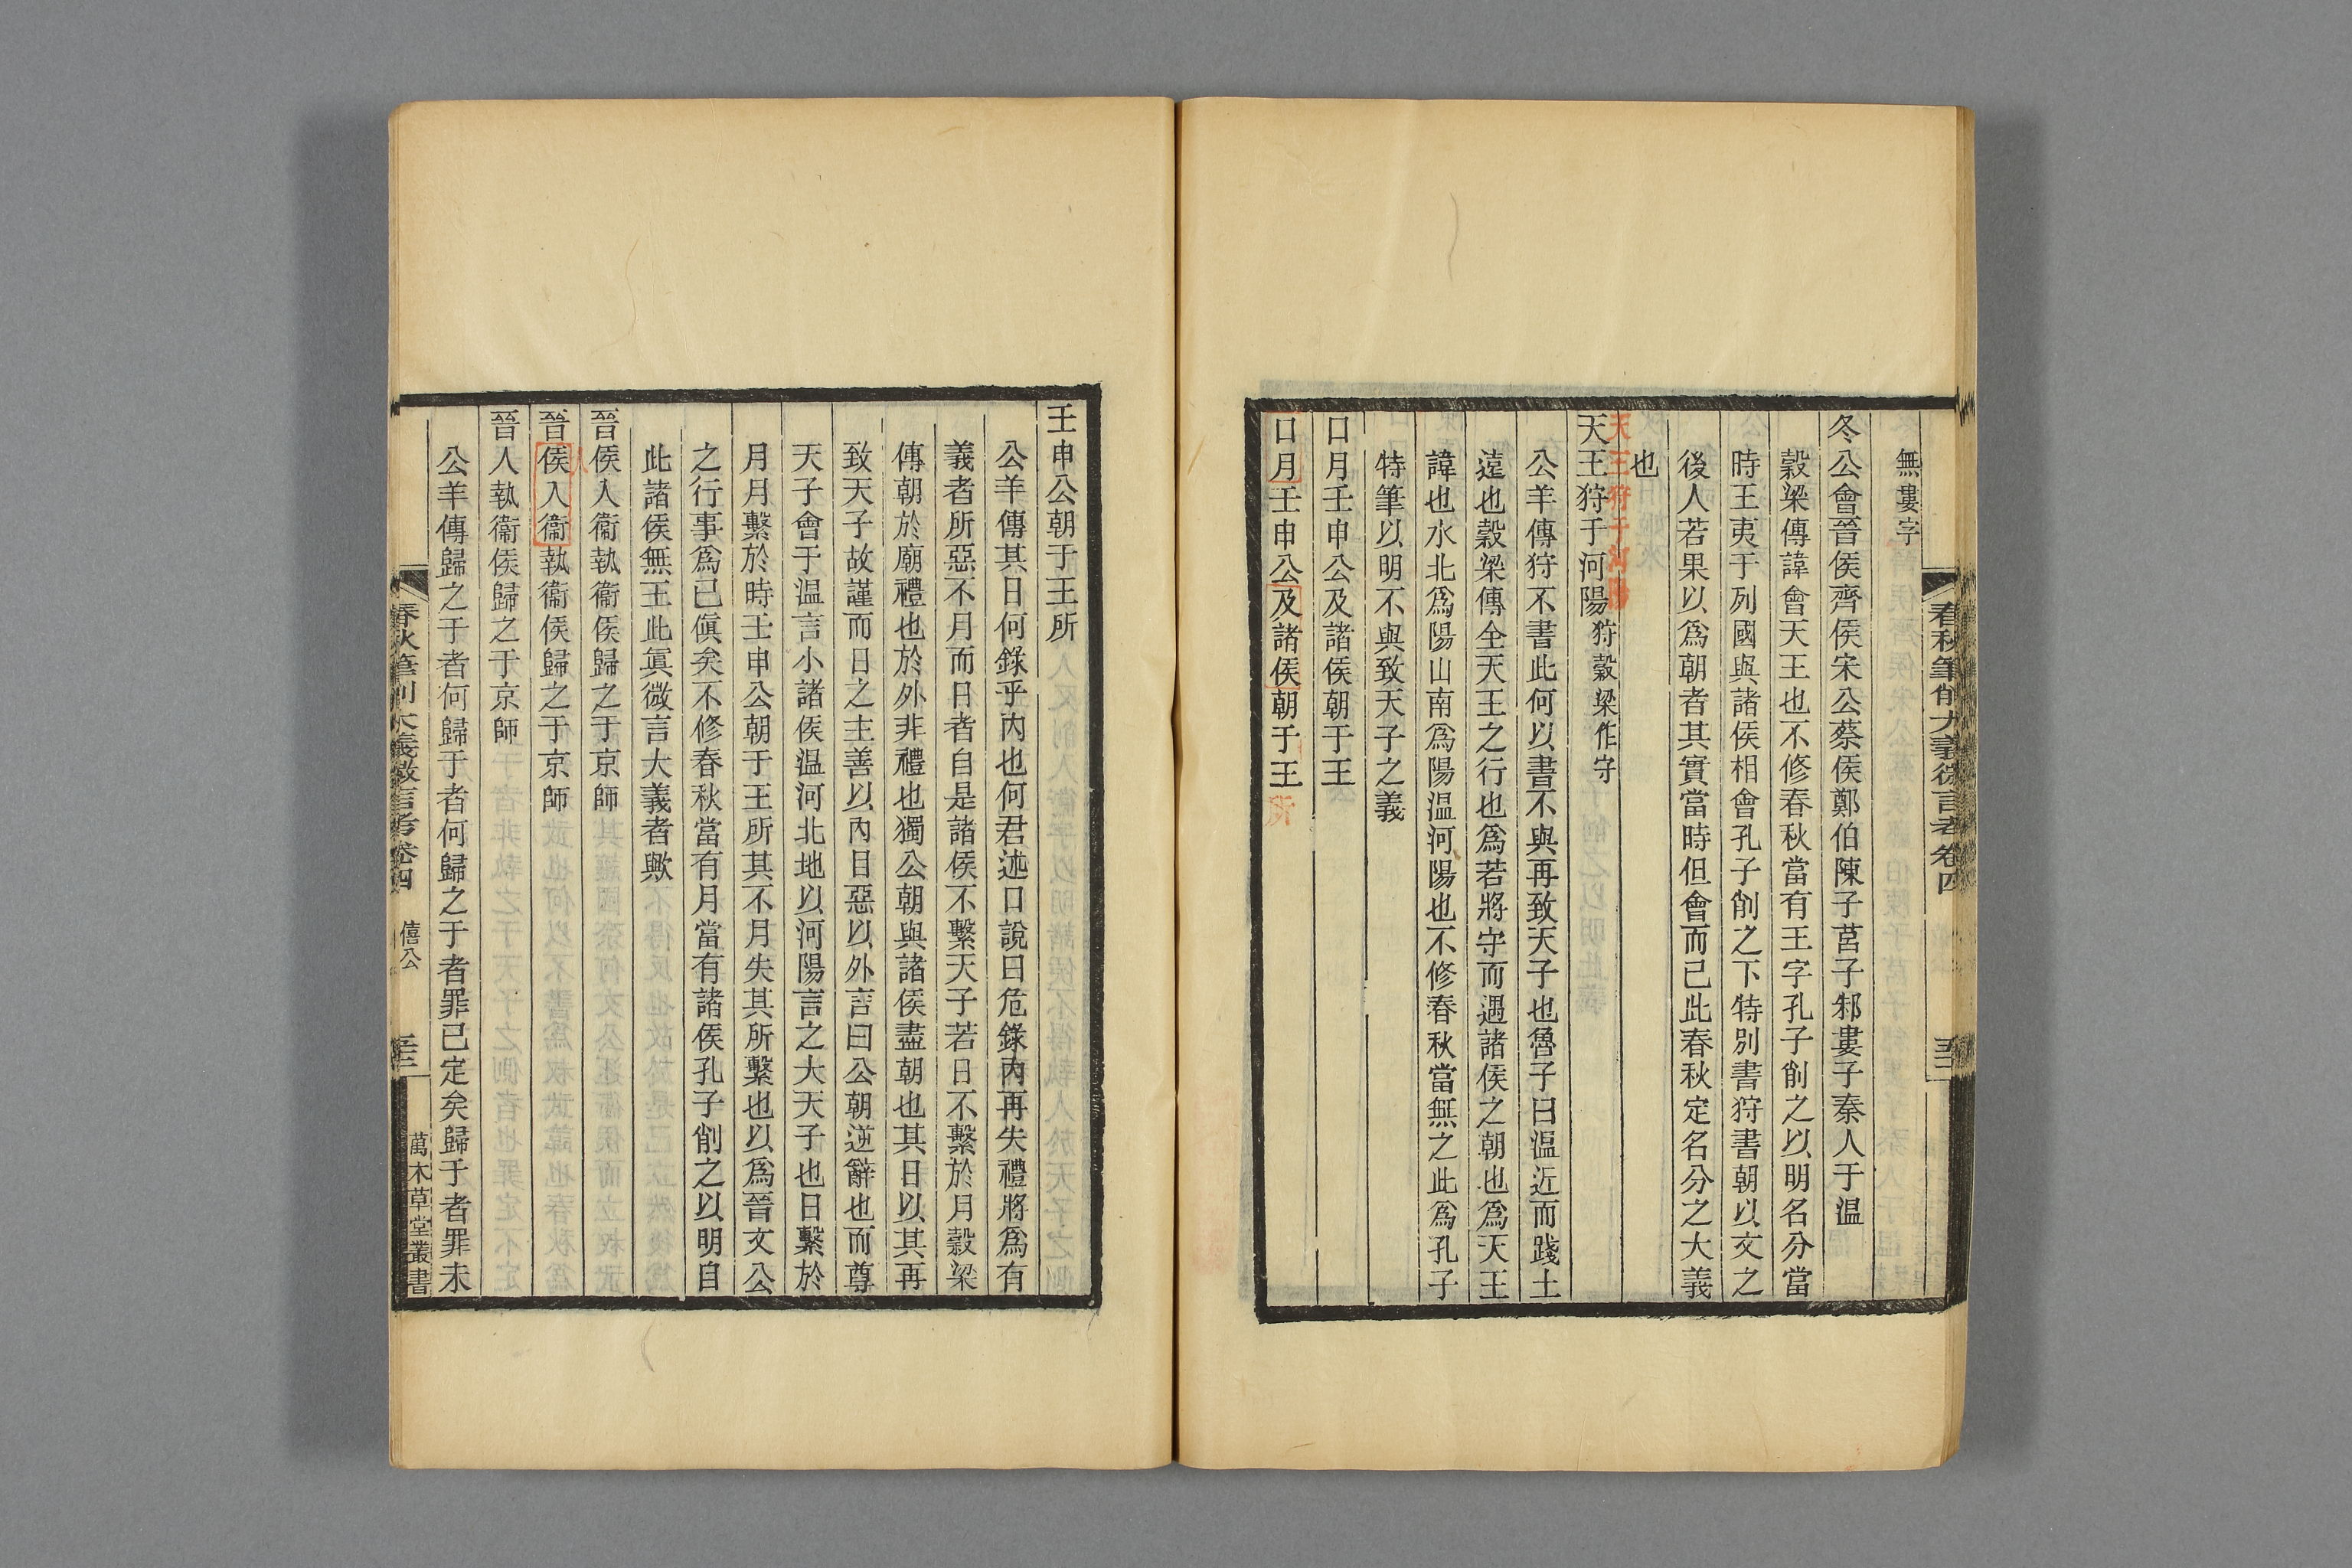 春秋筆削大義微言考卷四
無婁字
冬公會晉侯齊侯宋公蔡侯鄭伯陳子莒子邾婁子秦人于溫
穀梁傳諱會天王也不修春秋當有王字孔子削之以明名分當
時王夷于列國與諸侯相會孔子削之下特別書狩書朝以文之
後人若果以爲朝者其實當時但會而已此春秋定名分之大義
也
天王狩于河陽
天王狩于河陽狩穀梁作守
公羊傳狩不書此何以書不與再致天子也魯子曰溫近而踐土
遠也穀梁傳全天王之行也爲若將守而遇諸侯之朝也爲天王
諱也水北爲陽山南爲陽溫河陽也不修春秋當無之此爲孔子
特筆以明不與致天子之義
口月壬申公及諸侯朝于王
口月壬申公及諸侯朝于王所
壬申公朝于王所
公羊傳其日何錄乎內也何君述口說曰危錄內再失禮將爲有
義者所惡不月而日者自是諸侯不繫天子若日不繫於月穀梁
傳朝於廟禮也於外非禮也獨公朝與諸侯盡朝也其日以其再
致天子故謹而日之主善以內目惡以外言曰公朝逆辭也而尊
天子會于溫言小諸侯溫河北地以河陽言之大天子也日繫於
月月繫於時壬申公朝于王所其不月失其所繫也以爲晉文公
之行事爲已傎矣不修春秋當有月當有諸侯孔子削之以明自
此諸侯無王此眞微言大義者歟
晉侯入衞執衞侯歸之于京師
晉侯入衞執衞侯歸之于京師
人
晉人執衞侯歸之于京師
公羊傳歸之于者何歸于者何歸之于者罪已定矣歸于者罪未
春秋筆削大義微言考卷四
僖公
萬木草堂叢書